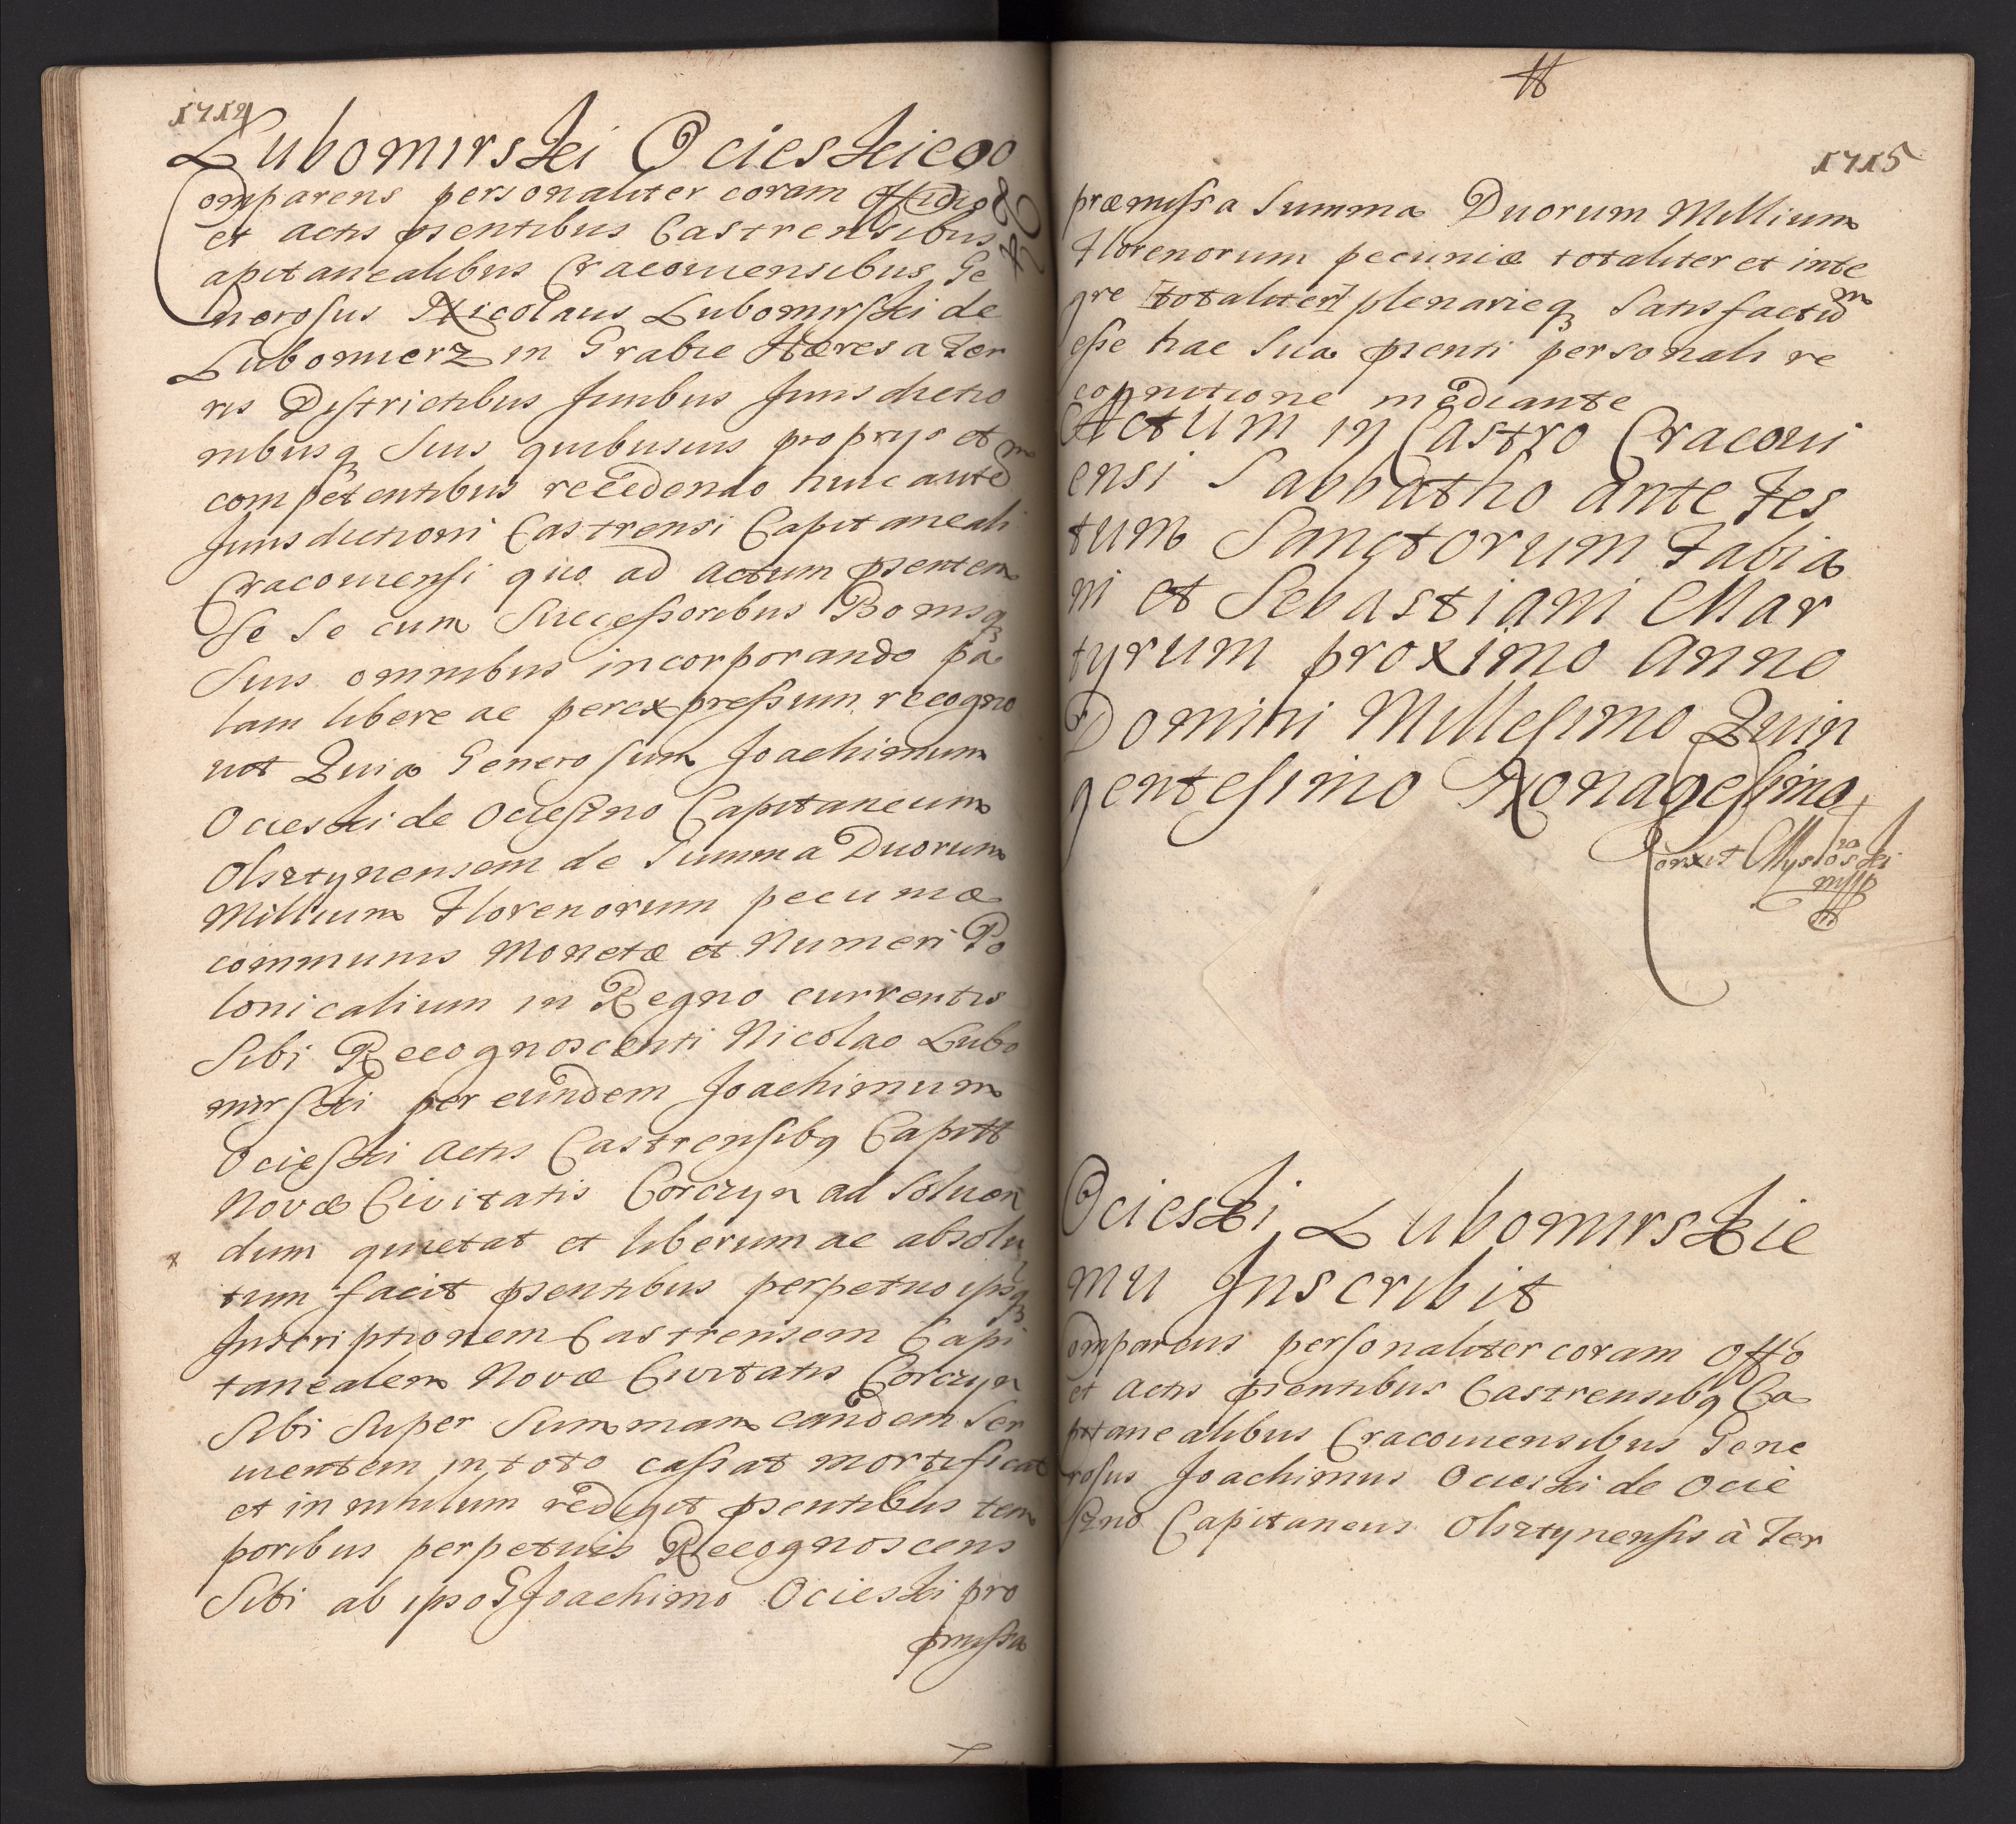 1714
Lubomirski Ocieskiego
Comparens personaliter coram Officio
et actis psentibus Castrensibus
apitanealibus Cracoviensibus Ge
nerosus Nicolaus Lubomirski de
Lubomierz in Grabie Hæres a Ter
ris Districtibus Juribus Jurisdictio
nibusq suis quibusvis proprys et
competentibus recedendo huic autem
Jurisdictioni Castrensi Capitaneali
Cracoviensi quo ad actum psentem
se se cum Successoribus Bonisq
suis omnibus incorporando pa
lam libere ac per expressum recogno
vit Quia Generosum Joachimum
Ocieski de Ocieszno Capitaneum
Olsztynensem de Summa Duorum
Millium Florenorum pecuniæ
communis Monetæ et Numeri Po
lonicalium in Regno currentis
Sibi Recognoscenti Nicolao Lubo
mirski per eundem Joachimum
Ocieski actis Castrensibq Capitt
Novæ Civitatis Corczyn ad solven
dum quietat et liberum ac absolu
tum facit psentibus perpetuo ipsq
Inscriptionem Castrensem Capi
tanealem Novæ Civitatis Corczyn
Sibi Super Summam eandem Ser
vientem in toto cassat mortificat
et in nihilum rediget psentibus tem
poribus perpetuis Recognoscens
Sibi ab ipso G Joachimo Ocieski pro
pmissa
1715
præmissa Summa Duorum Millium
Florenorum pecuniæ totaliter et inte
gre [totaliter] plenarieq Satisfactum
esse hac Sua psenti personali re
cognitione mediante
Actum in Castro Cracovi
ensi Sabbatho ante Fes
tum Sanctorum Fabia
ni et Sebastiani Mar
tyrum proximo Anno
Domini Millesimo Quin
gentesimo Nonagesimo
Corxit Mysłowski
mpp
Ocieski Lubomirskie
mu Inscribit
omparens personaliter coram Offo
et actis psentibus Castrensibq Ca
pitanealibus Cracoviensibus Gene
rosus Joachimus Ocieski de Ocie
szno Capitaneus Olsztynensis à Ter